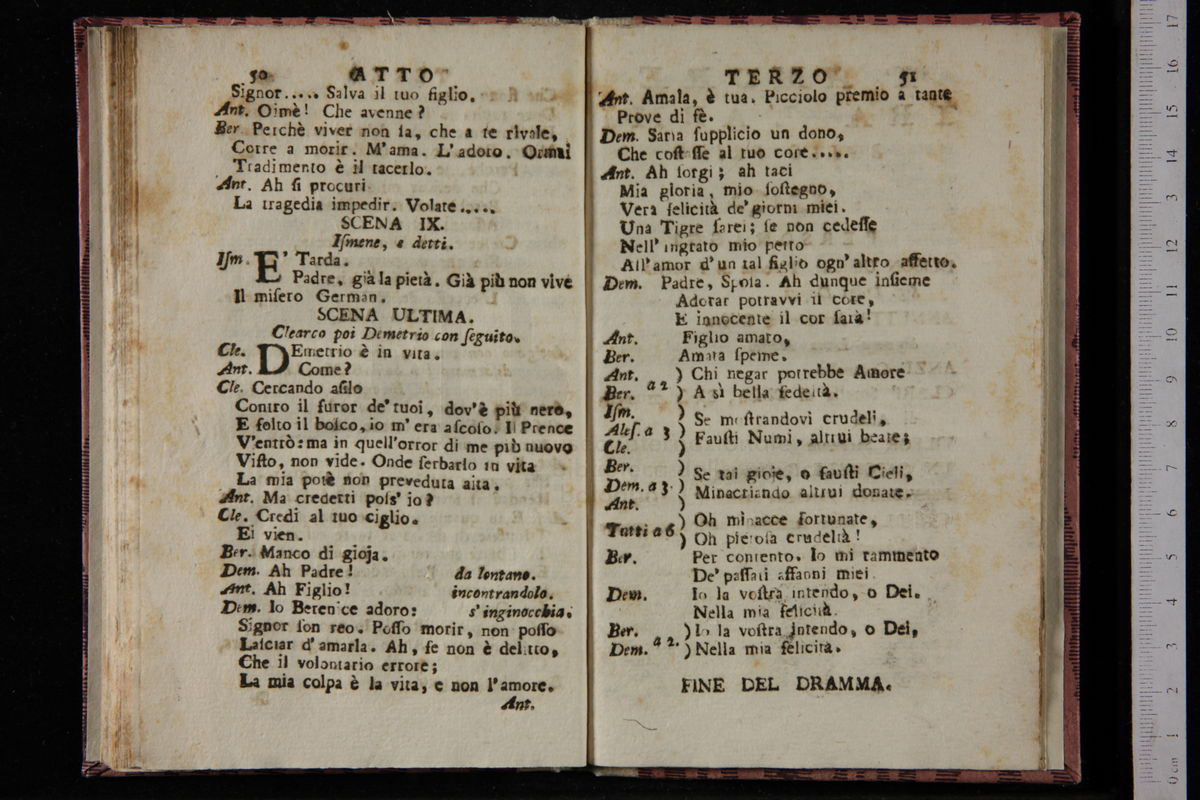 50 ATTO
Signor..... Salva il tuo figlio.
Ant. Oimè! Che avenne?
Ber. Perchè viver non ſa, che a te rivale,
Corre a morir. M'ama. L'adoro. Ormai
Tradimento è il tacerlo.
Ant. Ah ſi procuri
La tragedia impedir. Volate.....
SCENA IX.
Iſmene, e detti.
Iſm. E' Tarda.
Padre, già la pietà. Già più non vive
Il miſero German.
SCENA ULTIMA.
Clearco poi Demetrio con ſeguito.
Cle. DEmetrio è in vita.
Ant. Come?
Cle. Cercando aſilo
Contro il furor de' tuoi, dov'è più nero,
E folto il boſco, io m'era aſcoſo. Il Prence
V'entrò: ma in quell'orror di me più nuovo
Viſto, non vide. Onde ſerbarlo in vita
La mia potè non preveduta aita.
Ant. Ma crederti poſs' io?
Cle. Credi al tuo ciglio.
Ei vien.
Ber. Manco di gioja.
Dem. Ah Padre! da lontano.
Ant. Ah Figlio! incontrandolo.
Dem. Io Berenice adoro: s'inginocchia.
Signor ſon reo. Poſſo morir, non poſſo
Laſciar d'amarla. Ah, ſe non è delitto,
Che il volontario errore;
La mia colpa è la vita, e non l'amore.
Ant.
TERZO 51
Ant. Amala, è tua. Picciolo premio a tante
Prove di fè.
Dem. Saria ſupplicio un dono,
Che coſtaſſe al tuo core.....
Ant. Ah ſorgi; ah taci
Mia gloria, mio ſoſtegno,
Vera felicità de' giorni miei.
Una Tigre ſarei; ſe non cedeſſe
Nell' ingrato mio petto
All'amor d'un tal figlio ogn'altro affetto.
Dem. Padre, Spoſa. Ah dunque inſieme
Adorar potravvi il core,
E innocente il cor ſarà!
Ant. Figlio amato,
Ber. Amata ſpeme.
Ant. ) Chi negar potrebbe Amore
Ber. a 2 ) A sì bella fedeltà.
Iſm. )
Se moſtrandovi crudeli,
Aleſ. a 3 )
Fauſti Numi, altrui beate;
Cle. )
Ber. )
Se tai gioje, o fauſti Cieli,
Dem. a 3. )
Minacciando altrui donate.
Ant. )
Tutti a 6 ) Oh minacce fortunate,
) Oh pietoſa crudeltà!
Ber. Per contento. Io mi rammento
De' paſſati affanni miei.
Dem. Io la voſtra intendo, o Dei.
Nella mia felicità.
Ber. ) Io la voſtra intendo, o Dei,
Dem. a 2. ) Nella mia felicità.
FINE DEL DRAMMA.
0 cm 1 2 3 4 5 6 7 8 9 10 11 12 13 14 15 16 17